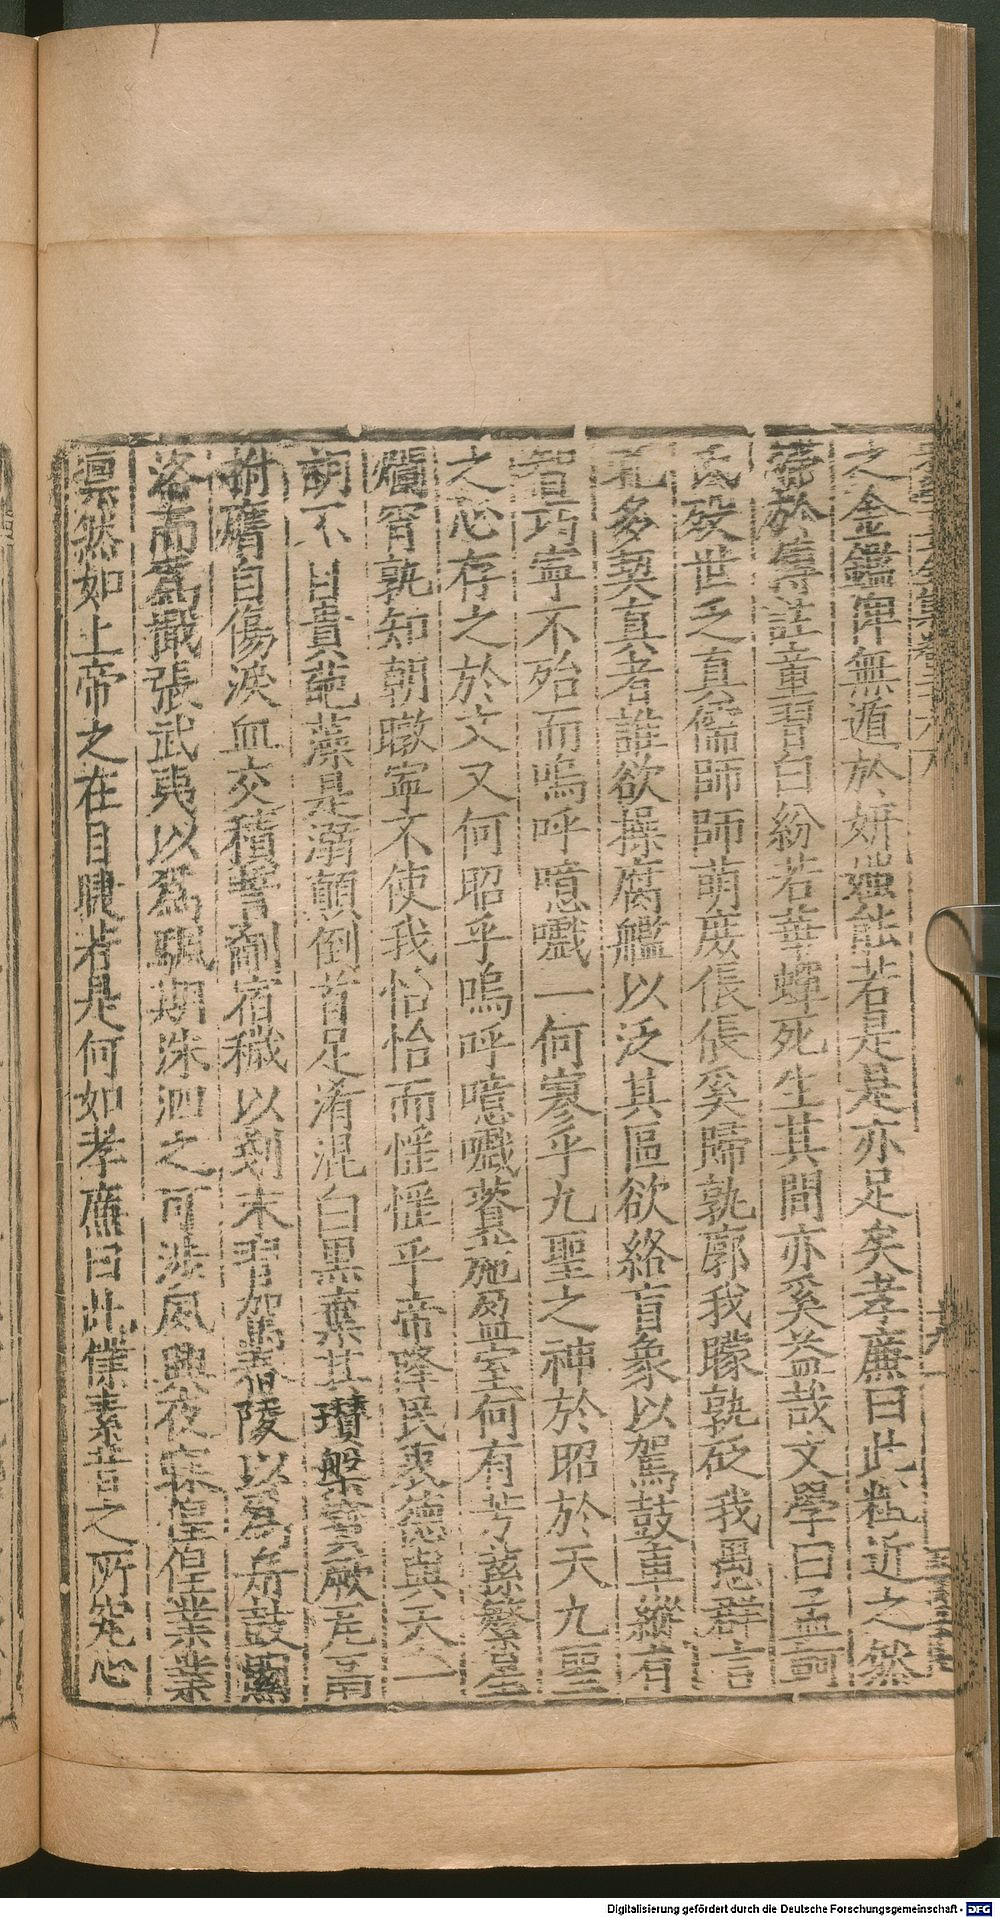 之金鑑俾無遁於妍媸能若是是亦足矣孝廉曰此粗近之然
於傳註童習白紛若華蟬死生其間亦奚益哉文學曰孟軻
氏歿世乏真儒師師萌庶倀倀奚歸孰廓我矇孰砭我愚群言
孔多契真者誰欲操腐艦以泛其區欲絡盲象以駕鼓車縱有
智巧寧不殆而嗚呼噫嚱一何寥乎九聖之神於昭於天九聖
之心存之於文又何昭乎嗚呼噫嚱薋葹盈室何有芳蓀繁星
爛宵孰知朝暾寧不使我怡怡而惺惺乎帝降民衷德與天一
胡不目責葩藻是溺顛倒首足淆混白黑棄其瓚槃寶厥卮鬲
拊膺自傷淚血交積誓剷宿穢以刬末習駕舂陵以為舟鼓關
洛而為檝張武夷以為颿期洙泗之可涉夙興夜寐偟偟業業
凜然如上帝之在目睫若是何如孝廉曰此僕素昔之所究心
Digitalisierung gefördert durch die Deutsche Forschungsgemeinschaft - DFG